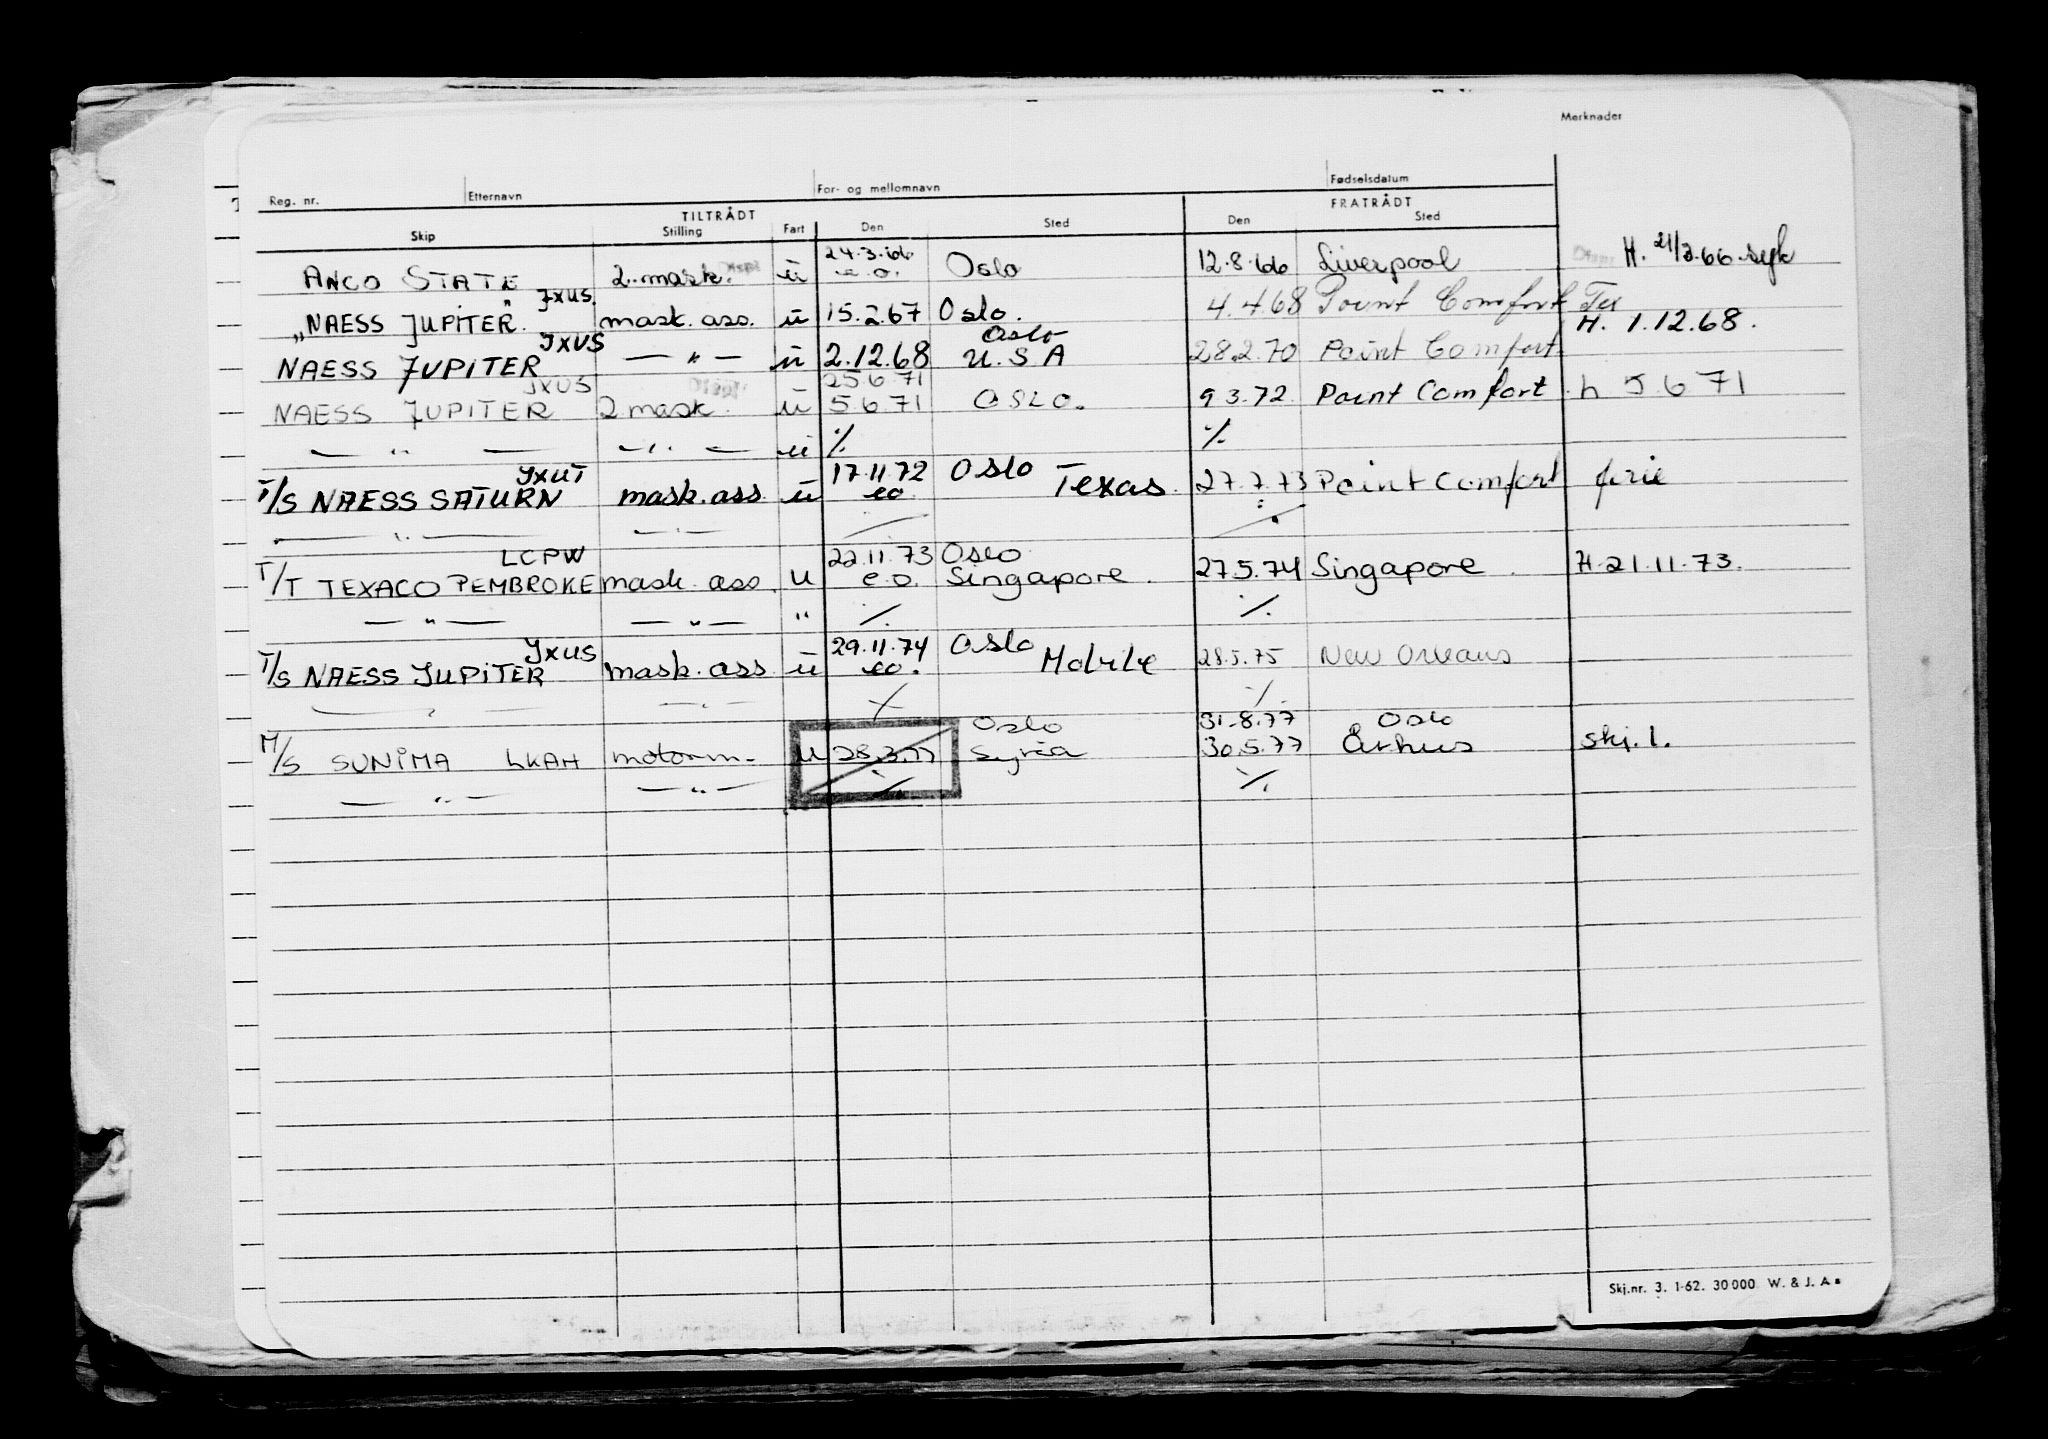 Merknader
Reg. nr. Etternavn For- og mellomnavn Fødselsdatum
TILTRÅDT FRATRÅDT
Skip Stilling Fart Den Sted Den Sted
24.3.66
ANCO STATE 2. mask. u e.o. Oslo 12.8.66 Liverpool H. 21/3.66. syk
JXUS.
„NAESS JUPITER." mask. ass. u 15.2.67 Oslo. 4.4.68 Point Comfort Tex
JXUS Oslo H. 1.12.68.
NAESS JUPITER — " — u 2.12.68 U.S.A 28.2.70 Point Comfort.
JXUS 25.6.71
NAESS JUPITER 2 mask. u 5.6.71 OSLO. 9.3.72 Point Comfort. h 5.6.71
— " — — " — u % %
JXUT 17.11.72 Oslo
T/S NAESS SATURN mask. ass. u eo. Texas. 27.7.73 Point Comfort ferie
— " — — " —
LCPW 22.11.73 Oslo
T/T TEXACO PEMBROKE mask. ass. u e.o. Singapore. 27.5.74 Singapore. H. 21.11.73.
— " — — " — " % %
JXUS 29.11.74 Oslo
T/S NAESS JUPITER mask. ass u eo. Mobile 28.5.75 New Orleans
— " — — " — % %
Oslo 31.8.77 Oslo
M/S SUNIMA LKAH motorm. u 28.3.77 Syria 30.5.77 Århus skj. 1.
— " — — " — % %
Skj.nr. 3. 1-62. 30 000. W. & J. A s